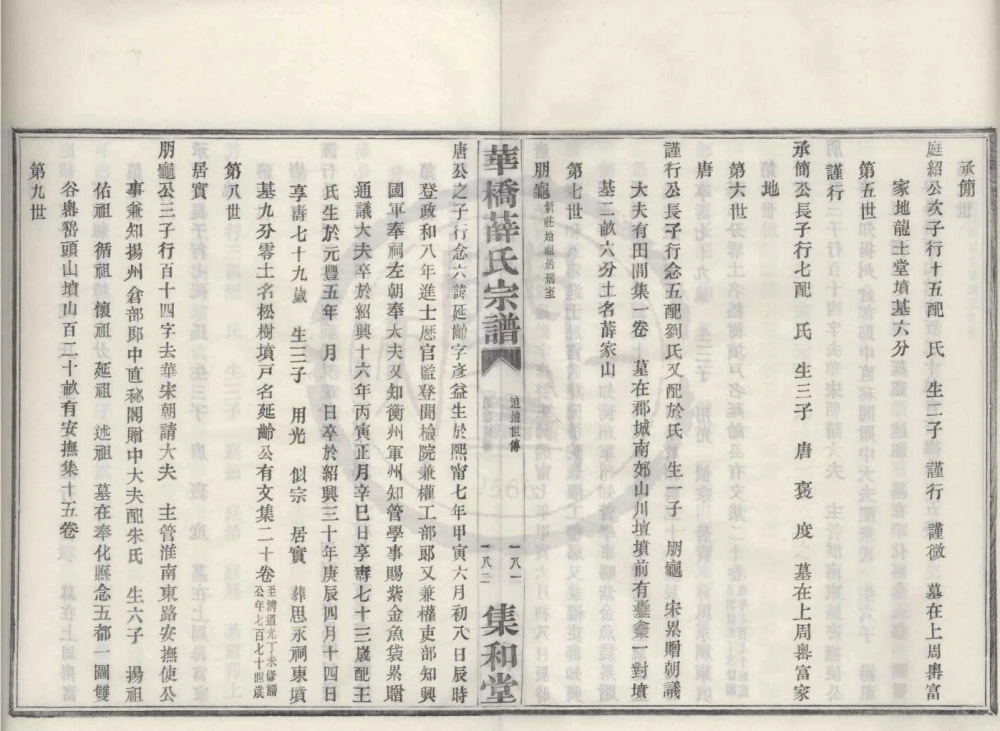 承簡
庭紹公次子行十五配　氏　生二子　謹行　謹微　墓在上周嶴富
家地龍王堂墳基六分
第五世
謹行
承簡公長子行七配　氏　生三子　唐　褒　度　墓在上周嶴富家
地
第六世
唐
謹行公長子行念五配劉氏又配於氏　生一子　朋龜　宋累贈朝議
大夫有田間集一卷　墓在郡城南郊山川壇墳前有一對墳
基二畝六分土名薛家山
第七世
朋龜 新莊始祖居
唐公之子行念六諱延齡字彥益生於熙甯七年甲寅六月初八日辰時
登政和八年進士歷官監登聞檢院兼權工部郎又兼權吏部知興
國軍奉祠左朝奉大夫又知衡州軍州知管學事賜紫金魚袋累贈
通議大夫卒於紹興十六年丙寅正月辛巳日享壽七十三歲配王
氏生於元豐五年　月　日卒於紹興三十年庚辰四月十四日
享壽七十九歲　生三子　用光　似宗　居實　葬思永祠東墳
基九分零土名松樹墳戸名延齡公有文集二十卷 至清道光丁未修譜公年七百七十四歲
第八世
居實
朋龜公三子行百十四字去華宋朝請大夫　主管淮南東路安撫使公
事兼知揚州倉部郎中直秘閣贈中大夫配朱氏　生六子　揚祖
佑祖　循祖　懷祖　延祖　述祖　墓在奉化縣念五都一圖雙
谷嶴嶅頭山墳山百二十畝有安撫集十五卷
第九世
華橋薛氏宗譜
逌逌世傳
一八一
一八二
集和堂